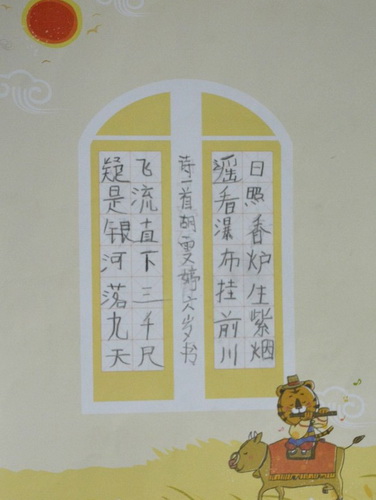 日照香炉生紫烟
遥看瀑布挂前川
飞流直下三千尺
疑是银河落九天
诗一首胡雯婷六岁书